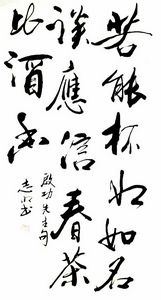 若能杯水如名
淡應信春茶
比酒香
啟功先生句